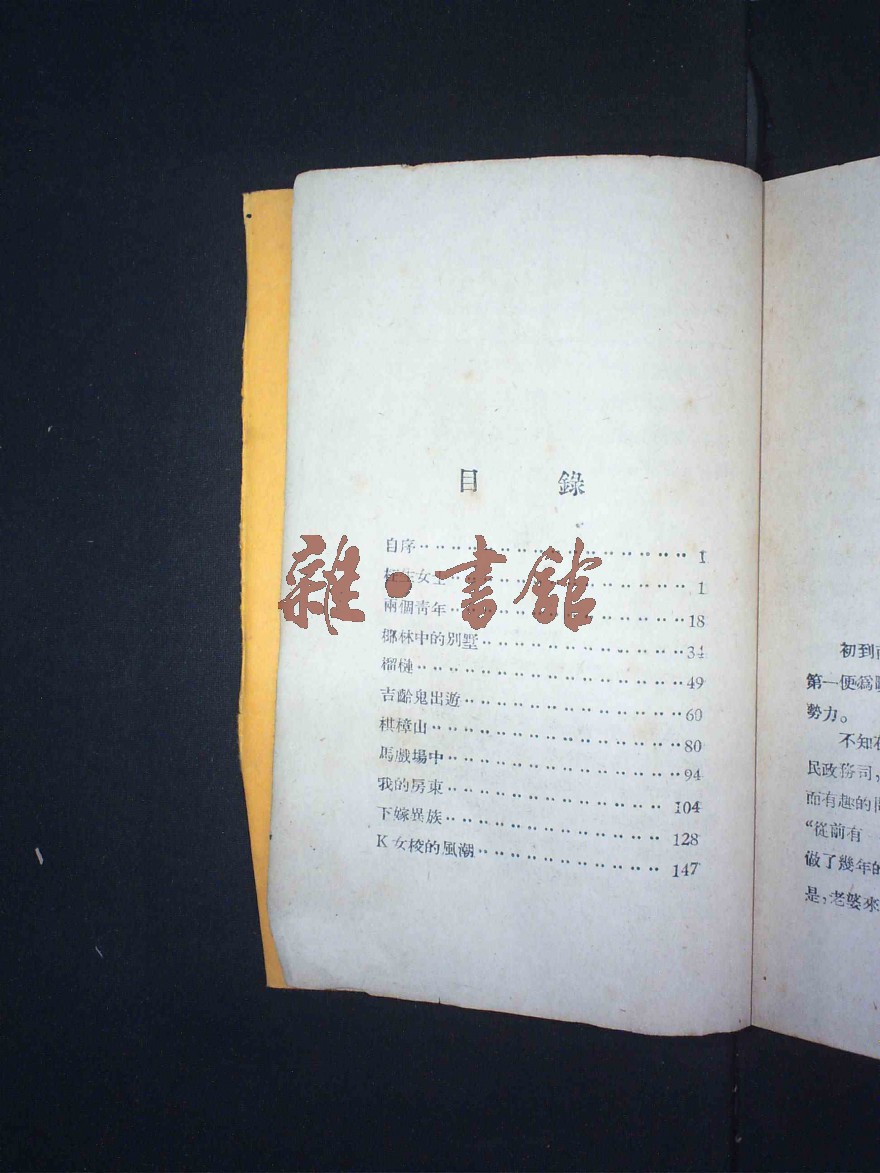 目錄
自序 I
生女士 1
兩個青年 18
椰林中的別墅 34
榴槤 49
吉齡鬼出遊 60
棋樟山 80
馬戲場中 94
我的房東 104
下嫁異族 128
K女校的風潮 147
雜·書館
初到
第一便爲
勢力。
不知在
民政務司,
而有趣的
“從前有一
做了幾年的
是,老婆來